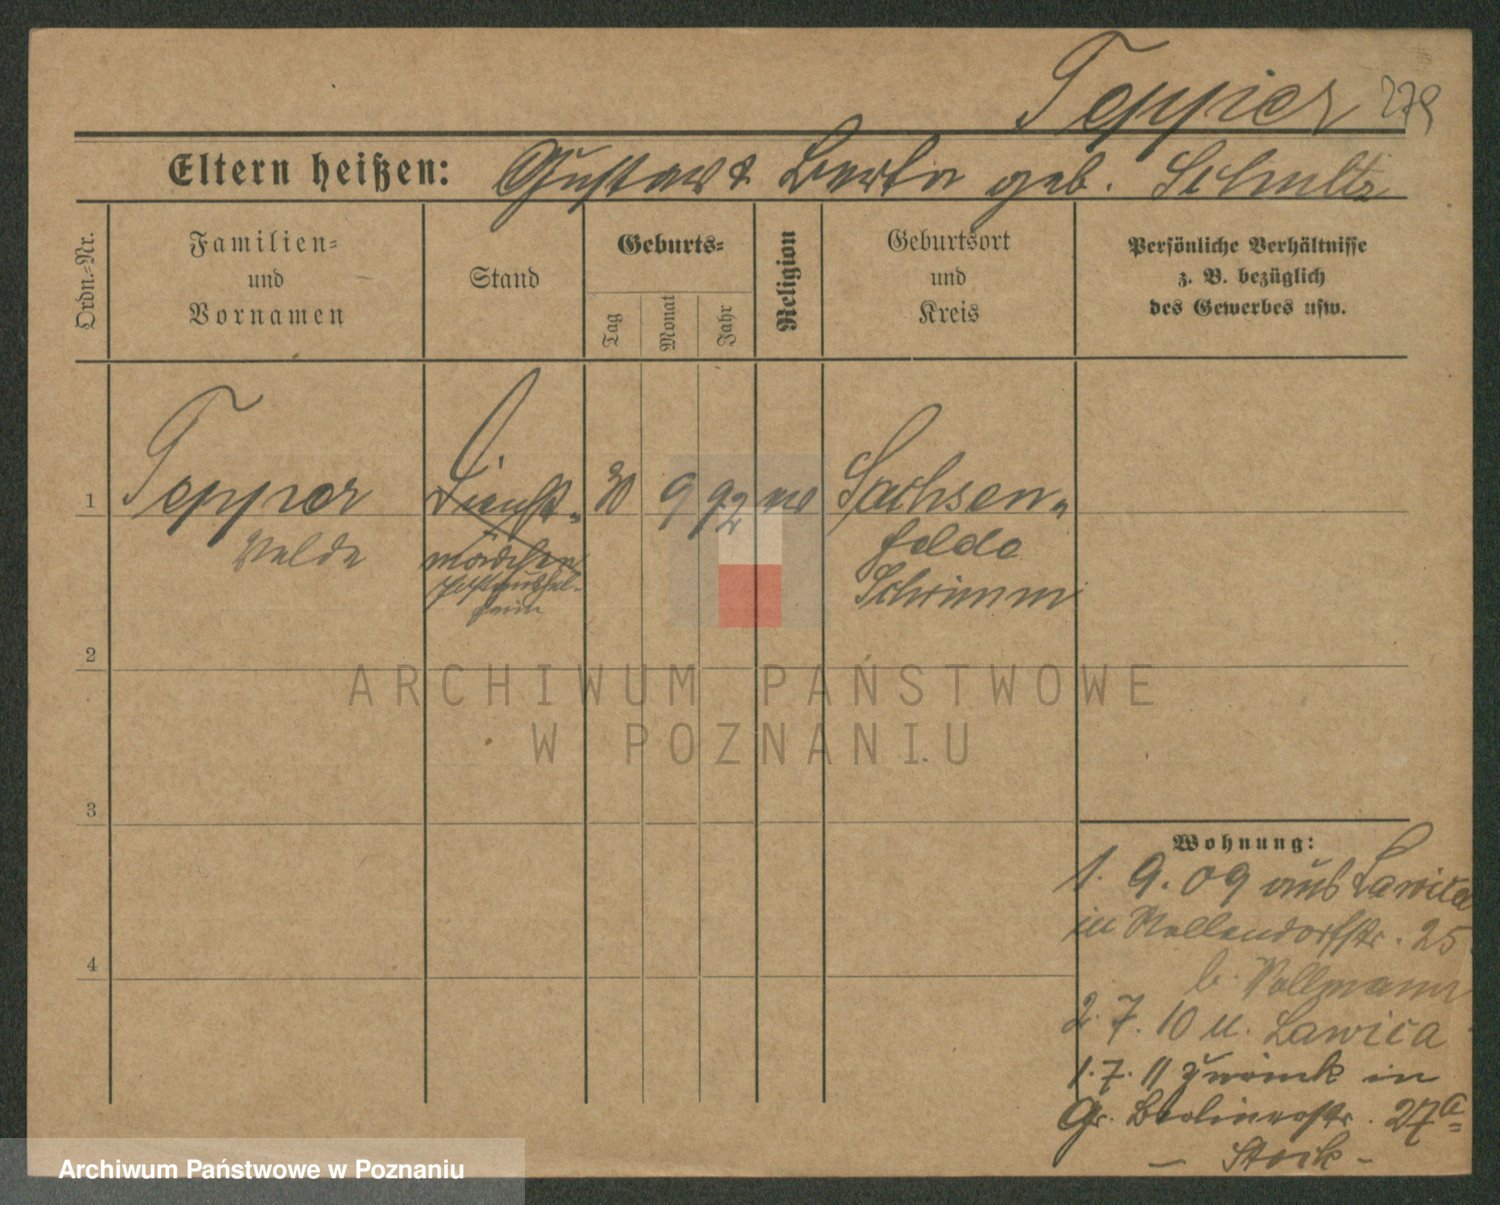 Tepper 279
Eltern heißen: Gustav & Berta geb. Schultz
Ordn.-Nr.
Familien-
und
Vornamen
Stand
Geburts-
Tag
Monat
Jahr
Religion
Geburtsort
und
Kreis
Persönliche Verhältnisse
z. B. bezüglich
des Gewerbes usw.
1 Tepper Dienst- 30 9 92 ev Sachsen-
mädchen felde
Schrimm
2
3
4
ARCHIWUM PAŃSTWOWE
W POZNANIU
Wohnung:
1. 9. 09 aus Lawica
in Nollendorfstr. 25
b. Vollmann
2. 7. 10 n. Lawica
1. 7. 11 zurück in
Gr. Berlinerstr. 27a
Archiwum Państwowe w Poznaniu